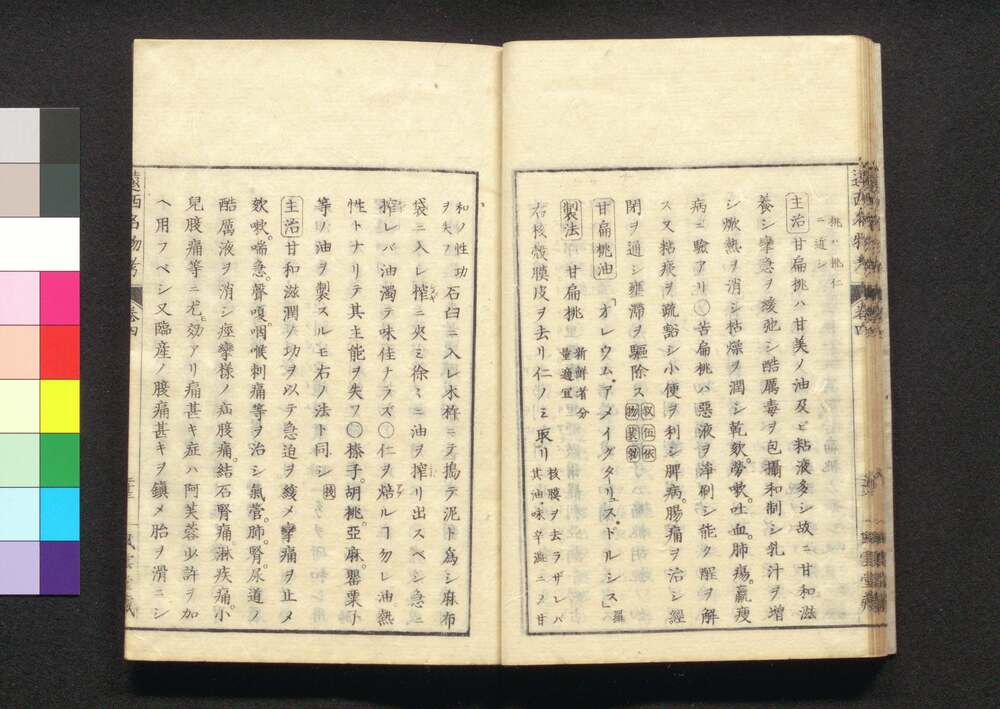 桃ハ桃仁
ニ近シ
主治 甘扁桃ハ甘美ノ油及ビ粘液多シ故ニ甘和滋
養シ攣急ヲ緩弛シ酷厲毒ヲ包攝和制シ乳汁ヲ増
シ焮熱ヲ消シ枯燥ヲ潤シ乾欬。勞嗽。吐血。肺瘍。羸瘦
病ニ驗アリ○苦扁桃ハ惡液ヲ淨刷シ能ク酲ヲ解
ス又粘痰ヲ疏豁シ小便ヲ利シ脾病。腸痛ヲ治シ經
閉ヲ通シ壅滯ヲ驅除ス
甘扁桃油 「オレウム・アメイグダリュス・ドルシス」羅
製法 甘扁桃 新鮮者分
量適宜
右核殻膜皮ヲ去リ仁ノミ取リ 核膜ヲ去ラザレバ
其油味辛澀ニノ甘
和ノ性功
ヲ失フ 石臼ニ入レ木杵ニテ搗テ泥ト爲シ麻布
袋ニ入レ搾ニ夾ミ徐々ニ油ヲ搾リ出スベシ急ニ
搾レバ油濁テ味佳ナラズ○仁ヲ焙ルヿ勿レ油熱
性トナリテ其主能ヲ失フ○榛子。胡桃。亞麻。罌粟ト
等ノ油ヲ製スルモ右ノ法ト同シ
主治 甘和滋潤ノ功ヲ以テ急迫ヲ緩メ攣痛ヲ止メ
欬嗽。喘急。聲嗄。咽喉刺痛等ヲ治シ氣管。肺。腎。尿道ノ
酷厲液ヲ消シ痙攣様ノ疝腹痛。結石腎痛。淋疾痛。小
兒腹痛等ニ尤効アリ痛甚キ症ハ阿芙蓉少許ヲ加
ヘ用フベシ又臨産ノ腹痛甚キヲ鎭メ胎ヲ滑ニシ
遠西名物考
卷四